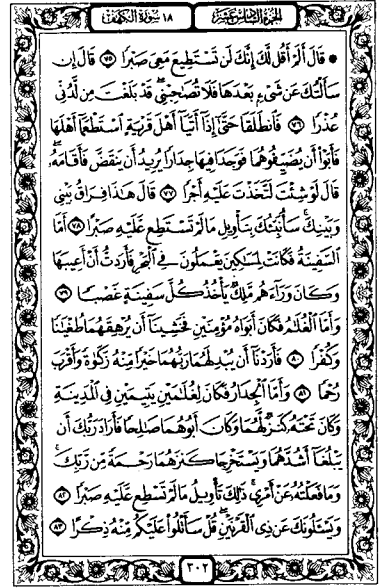 الجزء السادس عشر ١٨ سورة الكهف
۞ قَالَ أَلَمْ أَقُل لَّكَ إِنَّكَ لَن تَسْتَطِيعَ مَعِيَ صَبْرًا ٧٥ قَالَ إِن
سَأَلْتُكَ عَن شَيْءٍ بَعْدَهَا فَلَا تُصَاحِبْنِي قَدْ بَلَغْتَ مِن لَّدُنِّي
عُذْرًا ٧٦ فَانطَلَقَا حَتَّىٰ إِذَا أَتَيَا أَهْلَ قَرْيَةٍ اسْتَطْعَمَا أَهْلَهَا
فَأَبَوْا أَن يُضَيِّفُوهُمَا فَوَجَدَا فِيهَا جِدَارًا يُرِيدُ أَن يَنقَضَّ فَأَقَامَهُ
قَالَ لَوْ شِئْتَ لَتَّخَذْتَ عَلَيْهِ أَجْرًا ٧٧ قَالَ هَٰذَا فِرَاقُ بَيْنِي
وَبَيْنِكَ سَأُنَبِّئُكَ بِتَأْوِيلِ مَا لَمْ تَسْتَطِع عَّلَيْهِ صَبْرًا ٧٨ أَمَّا
السَّفِينَةُ فَكَانَتْ لِمَسَاكِينَ يَعْمَلُونَ فِي الْبَحْرِ فَأَرَدتُّ أَنْ أَعِيبَهَا
وَكَانَ وَرَاءَهُم مَّلِكٌ يَأْخُذُ كُلَّ سَفِينَةٍ غَصْبًا ٧٩
وَأَمَّا الْغُلَامُ فَكَانَ أَبَوَاهُ مُؤْمِنَيْنِ فَخَشِينَا أَن يُرْهِقَهُمَا طُغْيَانًا
وَكُفْرًا ٨٠ فَأَرَدْنَا أَن يُبْدِلَهُمَا رَبُّهُمَا خَيْرًا مِّنْهُ زَكَاةً وَأَقْرَبَ
رُحْمًا ٨١ وَأَمَّا الْجِدَارُ فَكَانَ لِغُلَامَيْنِ يَتِيمَيْنِ فِي الْمَدِينَةِ
وَكَانَ تَحْتَهُ كَنزٌ لَّهُمَا وَكَانَ أَبُوهُمَا صَالِحًا فَأَرَادَ رَبُّكَ أَن
يَبْلُغَا أَشُدَّهُمَا وَيَسْتَخْرِجَا كَنزَهُمَا رَحْمَةً مِّن رَّبِّكَ
وَمَا فَعَلْتُهُ عَنْ أَمْرِي ذَٰلِكَ تَأْوِيلُ مَا لَمْ تَسْطِع عَّلَيْهِ صَبْرًا ٨٢
وَيَسْأَلُونَكَ عَن ذِي الْقَرْنَيْنِ قُلْ سَأَتْلُو عَلَيْكُم مِّنْهُ ذِكْرًا ٨٣
٣٠٢